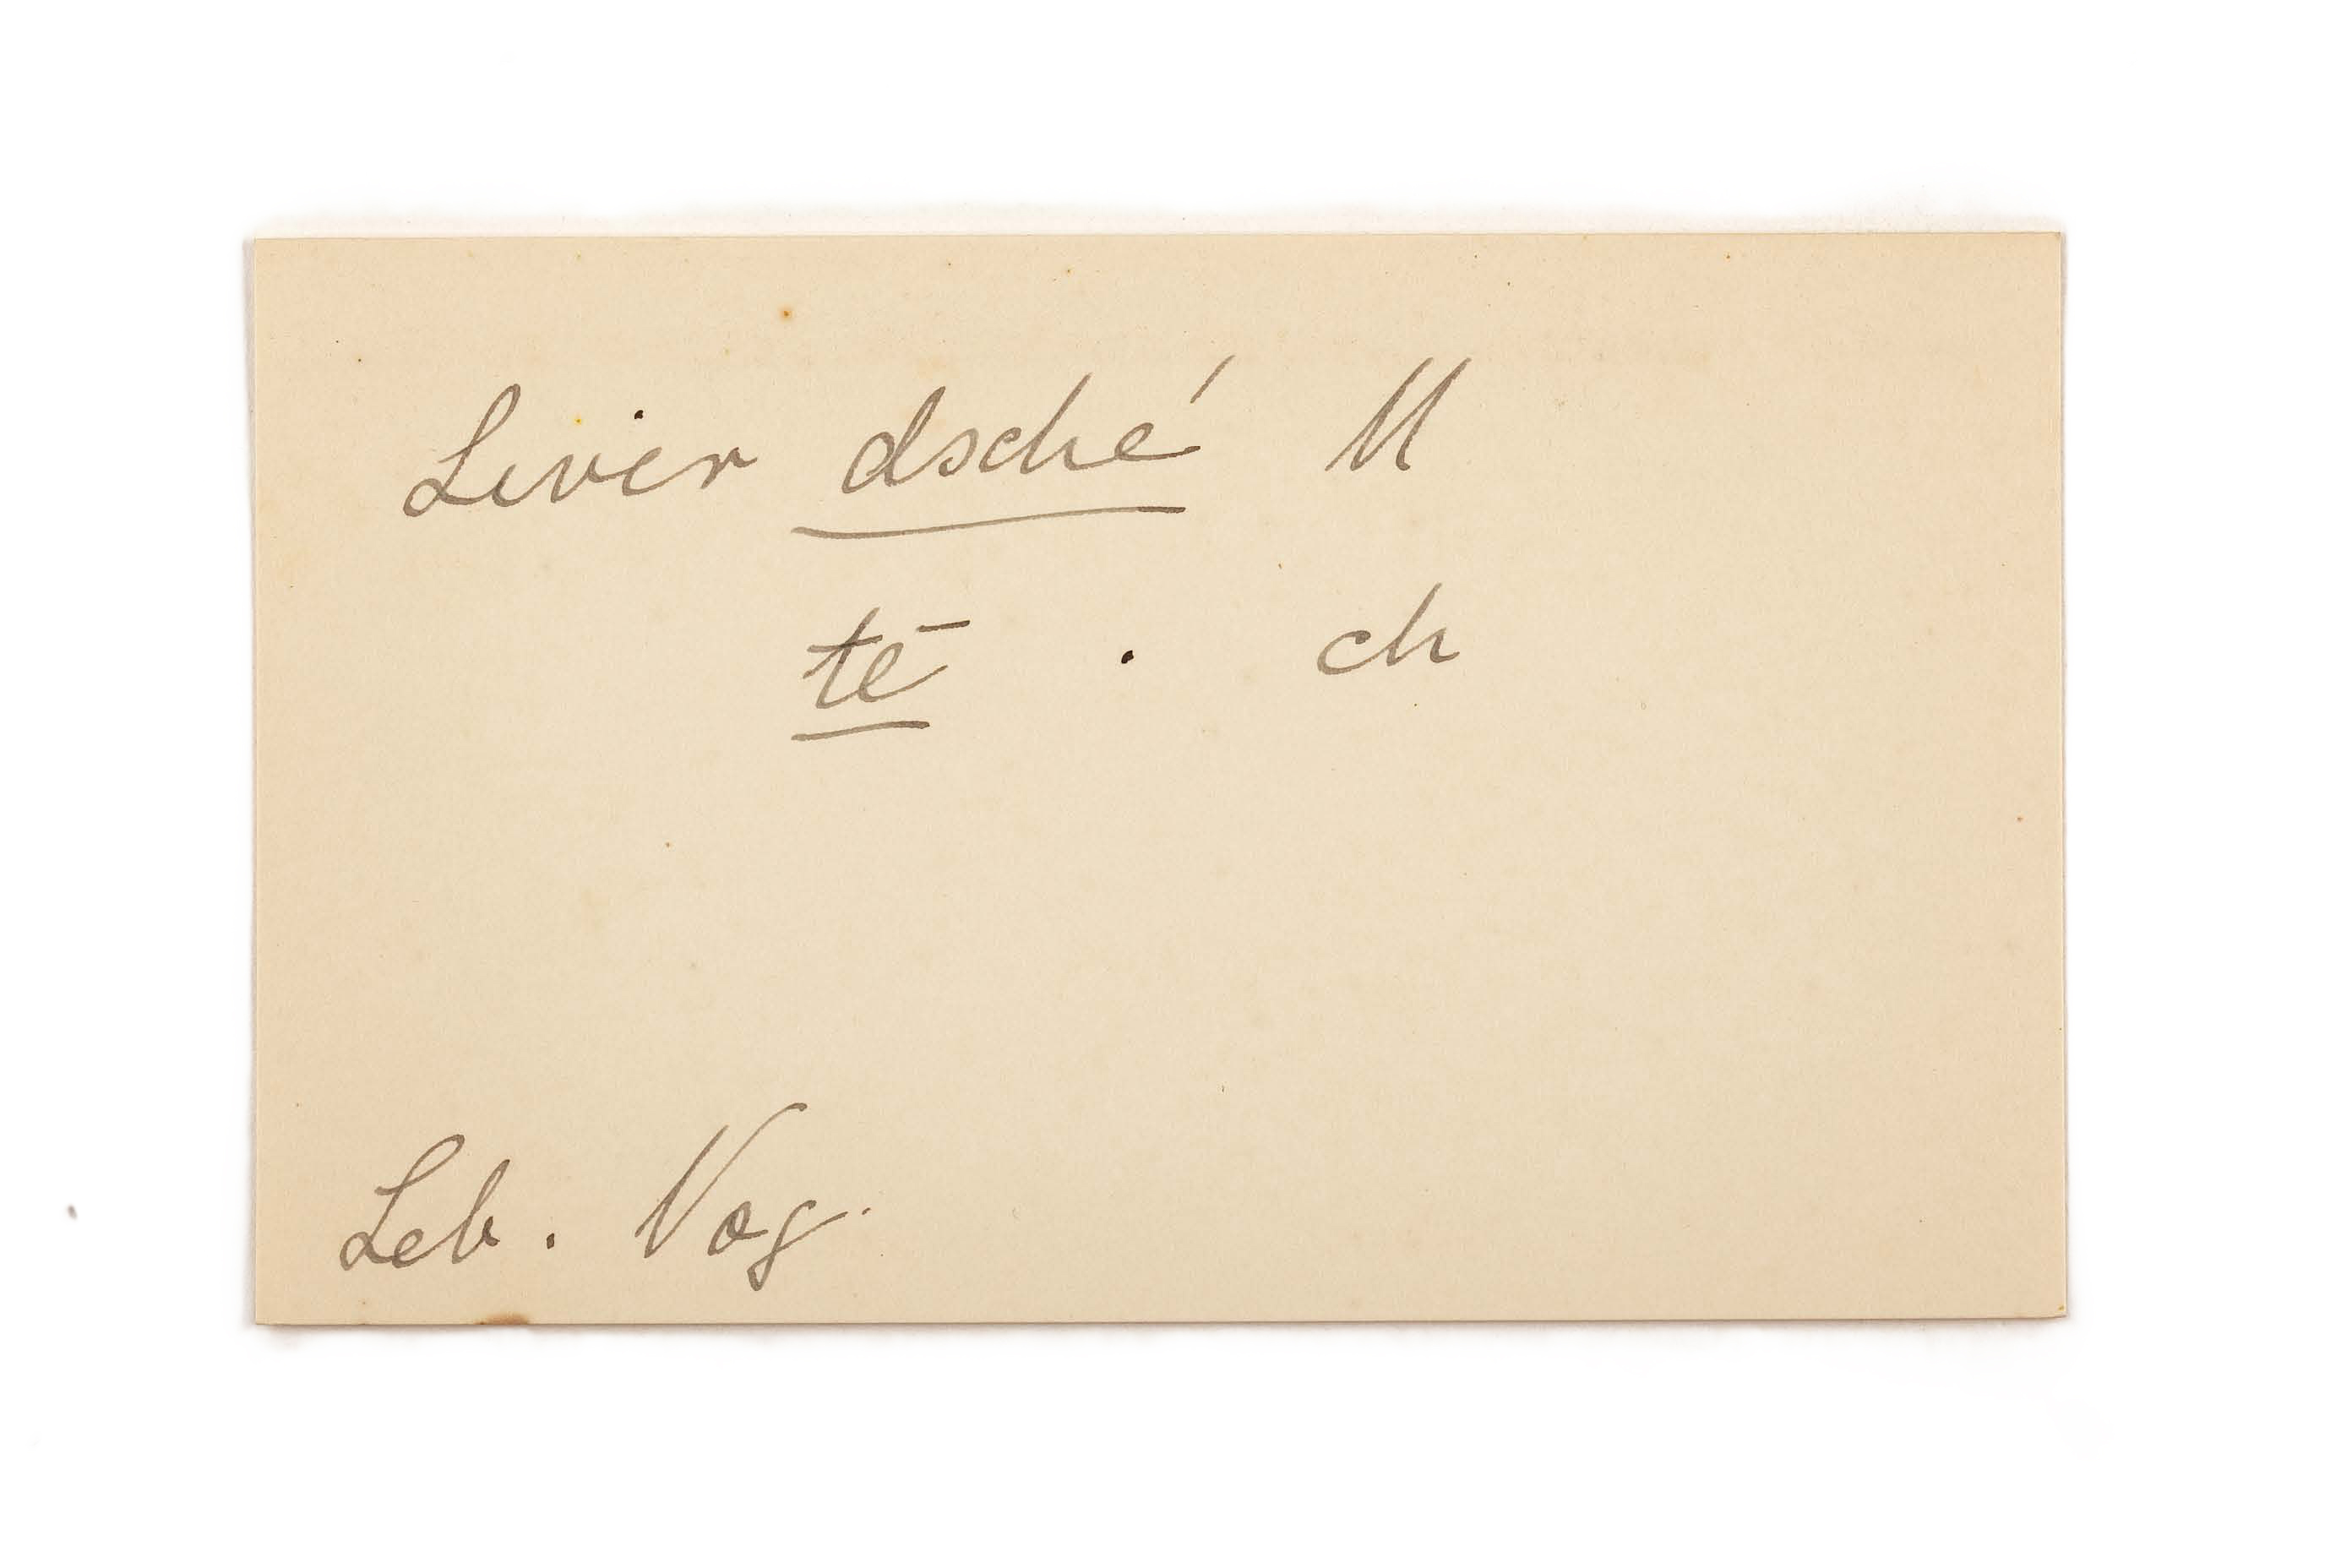 Liver dsché M
tē . ch
Leb. Vog.